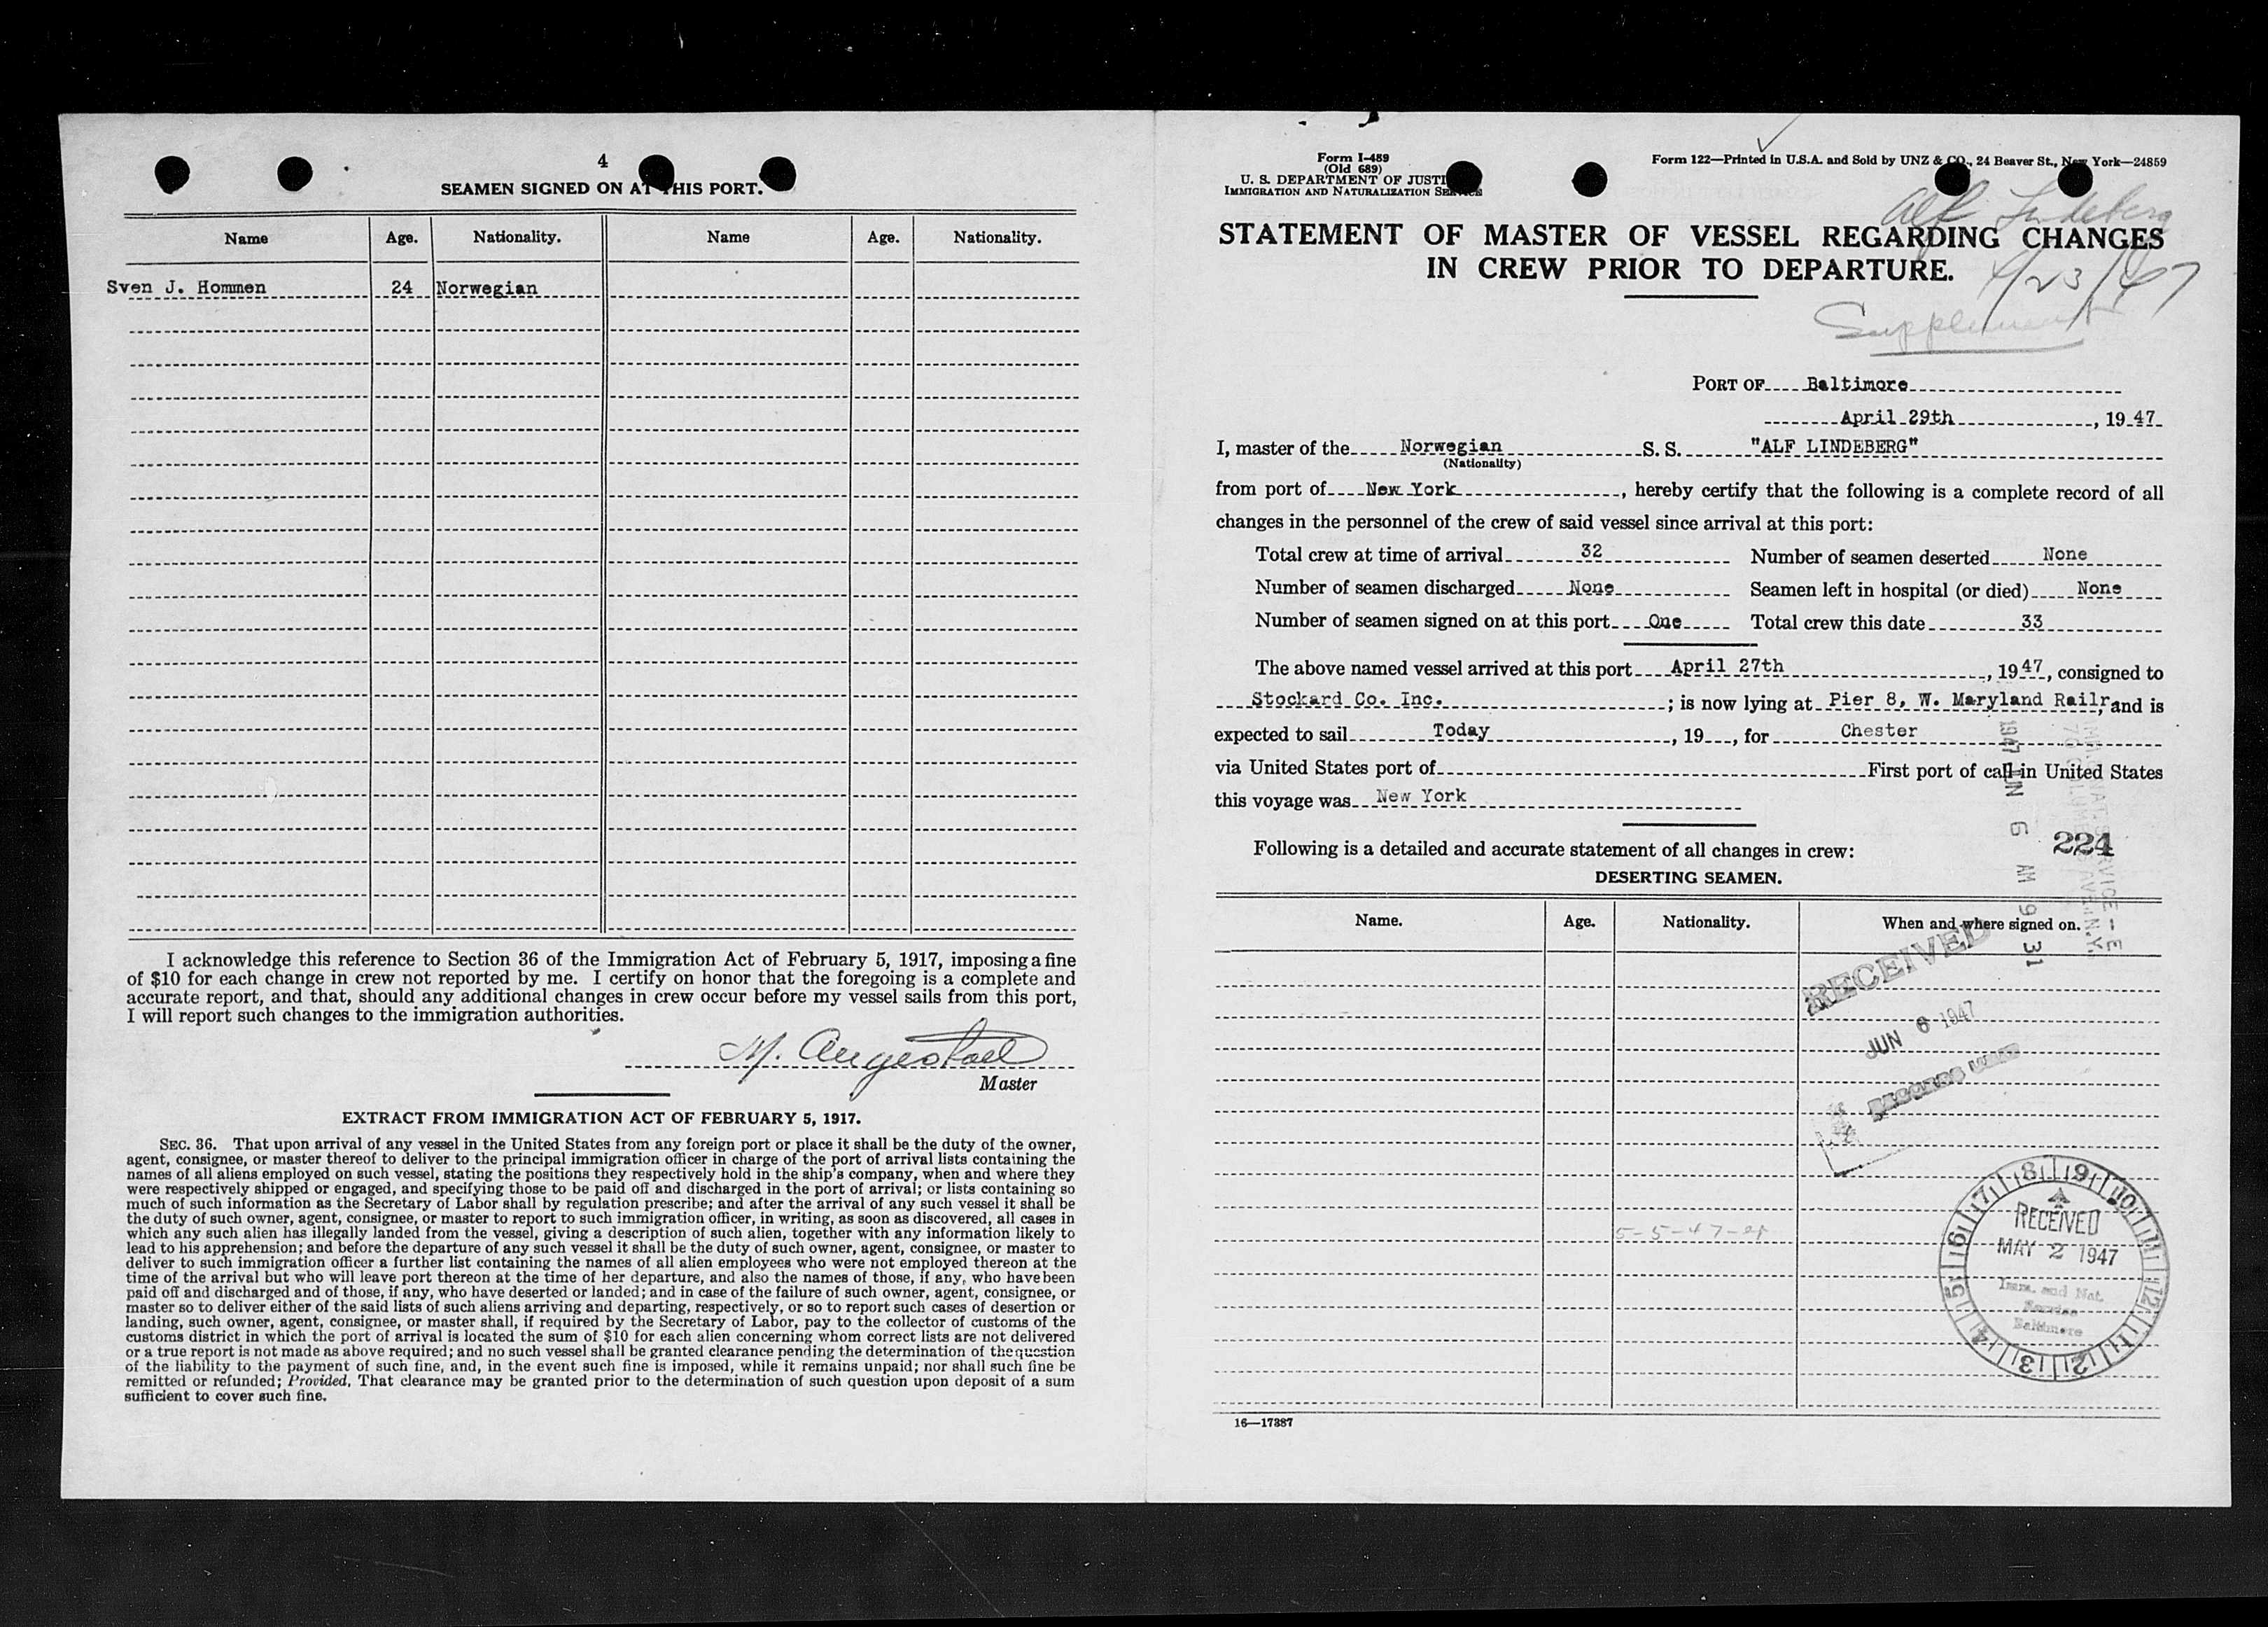 4
SEAMEN SIGNED ON AT THIS PORT.
Name Age. Nationality. Name Age. Nationality.
Sven J. Hommen 24 Norwegian
I acknowledge this reference to Section 36 of the Immigration Act of February 5, 1917, imposing a fine
of $10 for each change in crew not reported by me. I certify on honor that the foregoing is a complete and
accurate report, and that, should any additional changes in crew occur before my vessel sails from this port,
I will report such changes to the immigration authorities.
Master
EXTRACT FROM IMMIGRATION ACT OF FEBRUARY 5, 1917.
SEC. 36. That upon arrival of any vessel in the United States from any foreign port or place it shall be the duty of the owner,
agent, consignee, or master thereof to deliver to the principal immigration officer in charge of the port of arrival lists containing the
names of all aliens employed on such vessel, stating the positions they respectively hold in the ship's company, when and where they
were respectively shipped or engaged, and specifying those to be paid off and discharged in the port of arrival; or lists containing so
much of such information as the Secretary of Labor shall by regulation prescribe; and after the arrival of any such vessel it shall be
the duty of such owner, agent, consignee, or master to report to such immigration officer, in writing, as soon as discovered, all cases in
which any such alien has illegally landed from the vessel, giving a description of such alien, together with any information likely to
lead to his apprehension; and before the departure of any such vessel it shall be the duty of such owner, agent, consignee, or master to
deliver to such immigration officer a further list containing the names of all alien employees who were not employed thereon at the
time of the arrival but who will leave port thereon at the time of her departure, and also the names of those, if any, who have been
paid off and discharged and of those, if any, who have deserted or landed; and in case of the failure of such owner, agent, consignee, or
master so to deliver either of the said lists of such aliens arriving and departing, respectively, or so to report such cases of desertion or
landing, such owner, agent, consignee, or master shall, if required by the Secretary of Labor, pay to the collector of customs of the
customs district in which the port of arrival is located the sum of $10 for each alien concerning whom correct lists are not delivered
or a true report is not made as above required; and no such vessel shall be granted clearance pending the determination of the question
of the liability to the payment of such fine, and, in the event such fine is imposed, while it remains unpaid; nor shall such fine be
remitted or refunded; Provided, That clearance may be granted prior to the determination of such question upon deposit of a sum
sufficient to cover such fine.
Form I-489
(Old 689)
U. S. DEPARTMENT OF JUSTI
IMMIGRATION AND NATURALIZATION SERVICE
Form 122—Printed in U.S.A. and Sold by UNZ & CO., 24 Beaver St., New York—24859
Alf Lindeberg
STATEMENT OF MASTER OF VESSEL REGARDING CHANGES
IN CREW PRIOR TO DEPARTURE.
4/23/47
Supplement
PORT OF Baltimore
April 29th, 1947
I, master of the Norwegian S. S. "ALF LINDEBERG"
(Nationality)
from port of New York, hereby certify that the following is a complete record of all
changes in the personnel of the crew of said vessel since arrival at this port:
Total crew at time of arrival 32 Number of seamen deserted None
Number of seamen discharged None Seamen left in hospital (or died) None
Number of seamen signed on at this port One Total crew this date 33
The above named vessel arrived at this port April 27th, 1947, consigned to
Stockard Co. Inc. ; is now lying at Pier 8, W. Maryland Railr, and is
expected to sail Today, 19, for Chester
via United States port of First port of call in United States
this voyage was New York
1947 JUN 6 AM 9 31
224
Following is a detailed and accurate statement of all changes in crew:
DESERTING SEAMEN.
Name. Age. Nationality. When and where signed on.
RECEIVED
JUN 6 1947
5-5-47
8 9 10 11 12 1 2 3 4 5 6 7
RECEIVED
MAY 2 1947
Imm. and Nat.
Service
Baltimore
16—17387